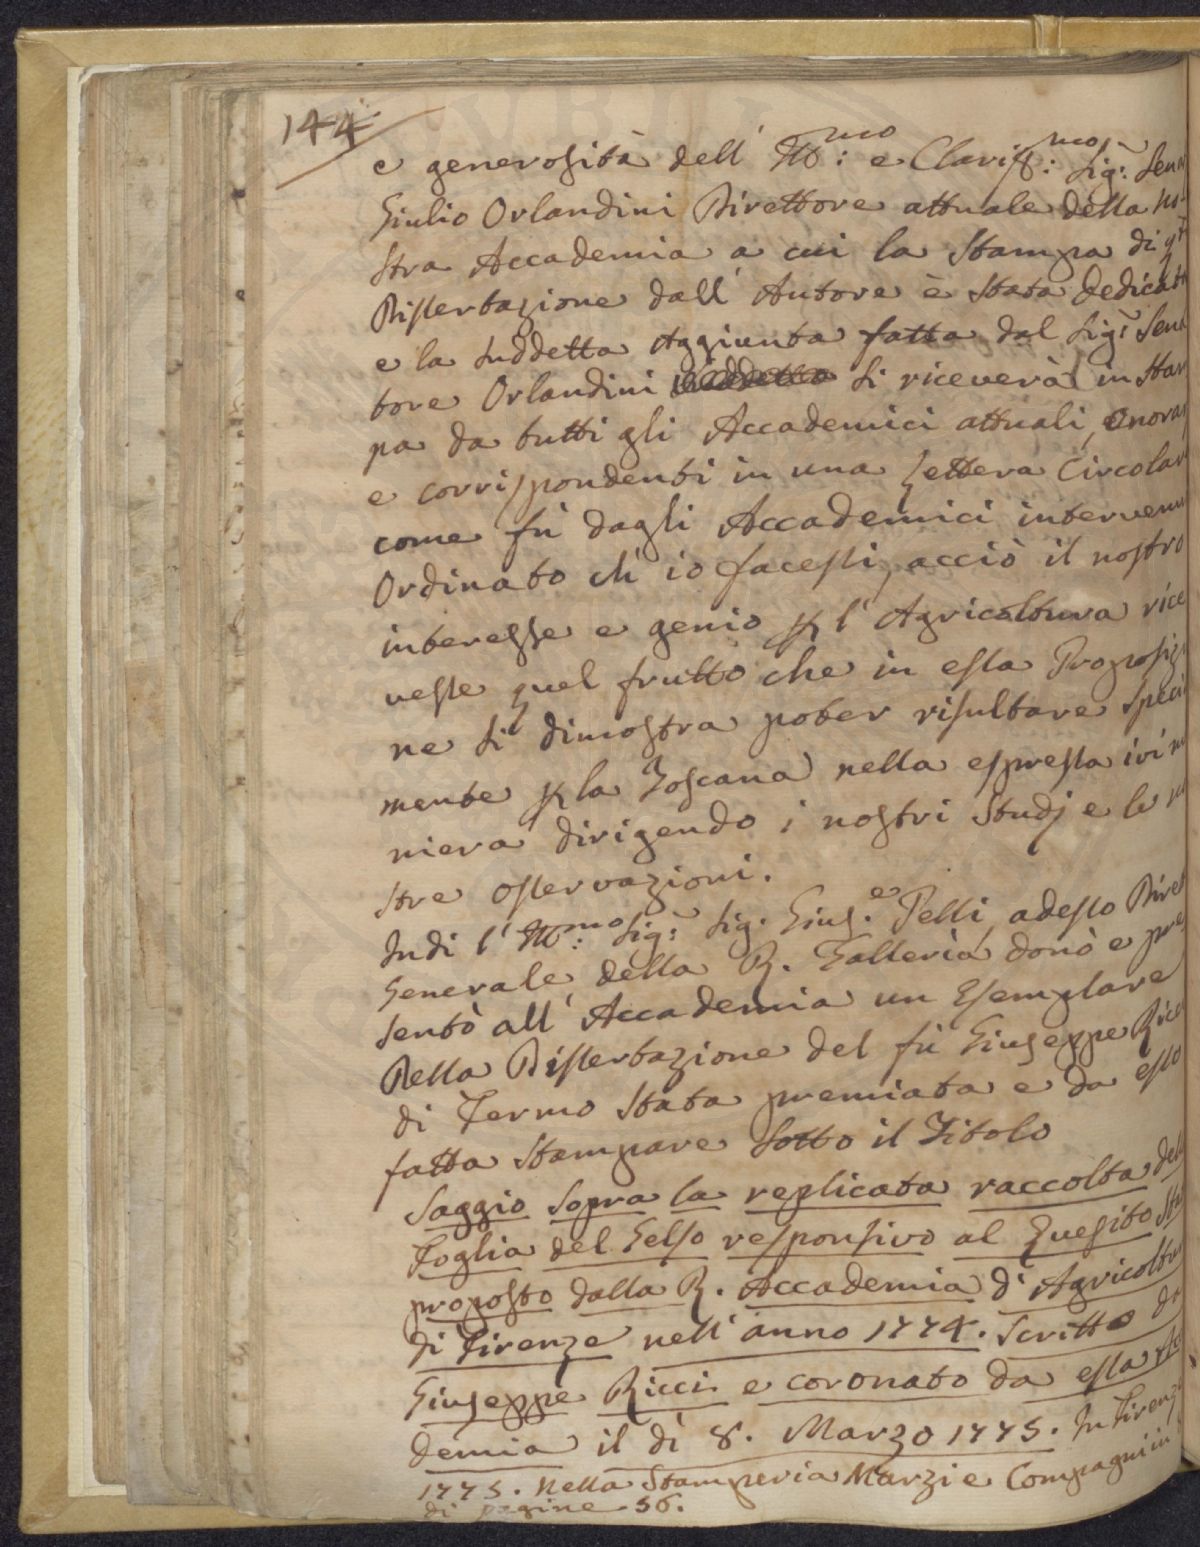 144
e generosità dell' Ill:mo e Clariss:mo Sig:r Sena
Giulio Orlandini Direttore attuale della no
stra Accademia a cui la Stampa di qta
Dissertazione dall' Autore è stata dedicata
e la suddetta Aggiunta fatta dal Sig:r Sena
tore Orlandini si riceverà in Stam
pa da tutti gli Accademici attuali, Onorar
e corrispondenti in una Lettera Circolar
come fù dagli Accademici intervenu
Ordinato ch' io facessi, acciò il nostro
interesse e genio p l' Agricoltura rice
vesse quel frutto che in essa Proposizi
ne si dimostra poter risultare Speci
mente p la Toscana nella espressa ivi m
niera dirigendo i nostri Studj e le n
stre osservazioni.
Indi l' Ill:mo Sig:r Sig. Gius.e Pelli, adesso Diret
Generale della R. Galleria donò e pre
sentò all' Accademia un Esemplare
Della Dissertazione del fù Giuseppe Ricci
di Fermo stata premiata e da esso
fatta Stampare sotto il Titolo
Saggio sopra la replicata raccolta del
Foglia del Gelso responsivo al Quesito Sta
proposto dalla R. Accademia d' Agricoltu
di Firenze nell' anno 1774. Scritto da
Giuseppe Ricci e coronato da essa Ac
demia il dì 8. Marzo 1775. In Firenz
1775. Nella Stamperia Marzi e Compagni in
di pagine 56.